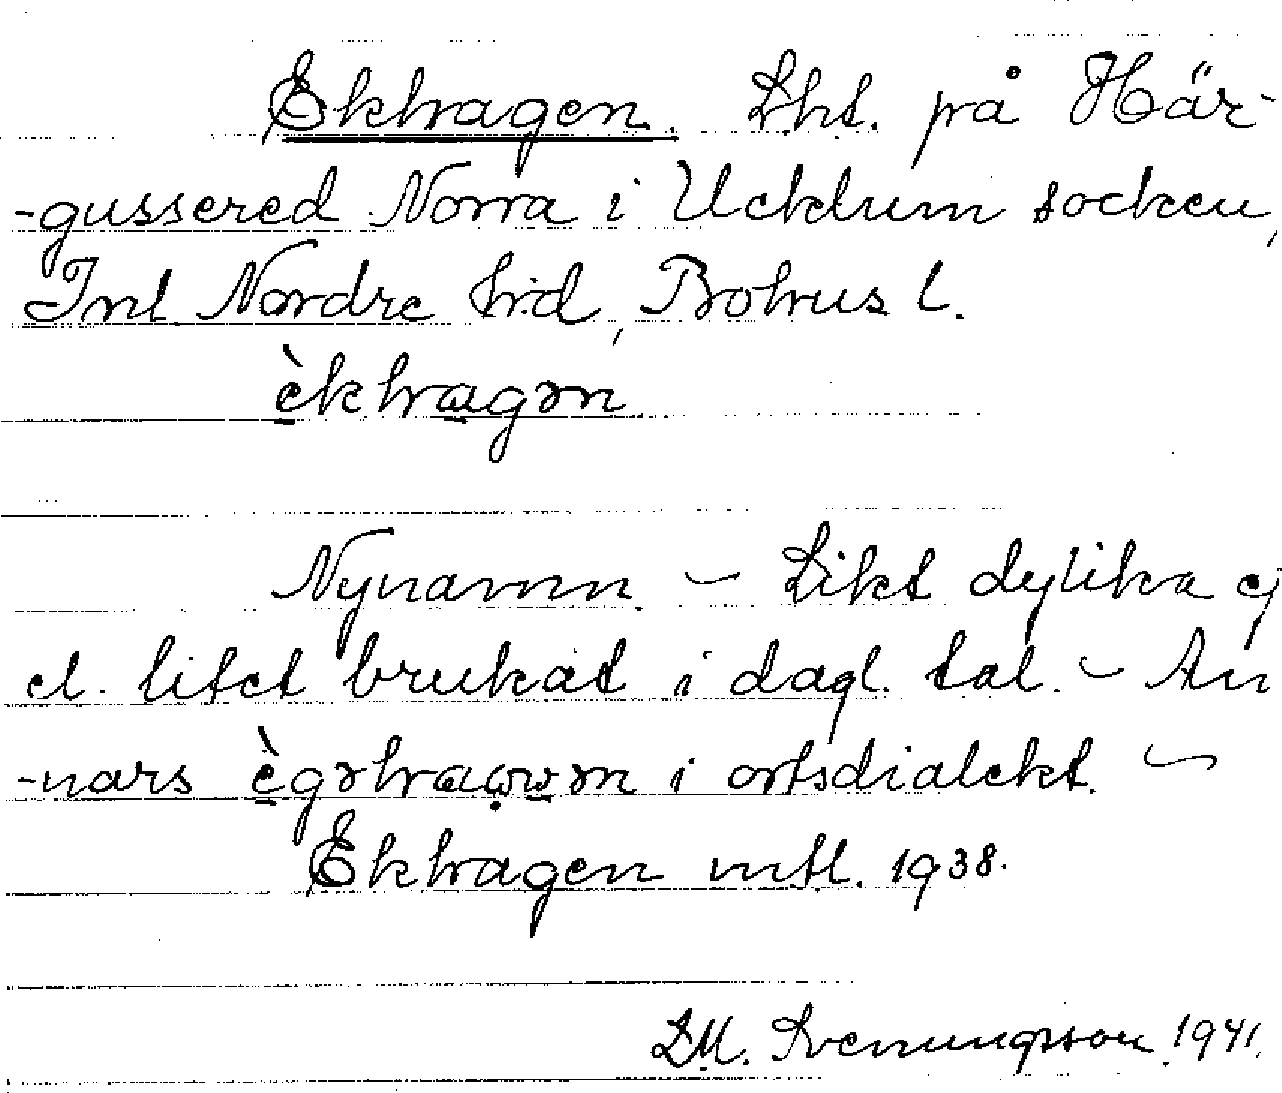 Ekhagen. Lht. på Här-
-gussered Norra i Ucklum socken,
Inl Nordre hrd, Bohus l.
è̱kha̱gən
Nynamn. – Likt dylika ej
el. litet brukat i dagl. tal. – An
-nars i ortsdialekt. –
Ekhagen mtl. 1938.
D.M. Svenungsson 1941.